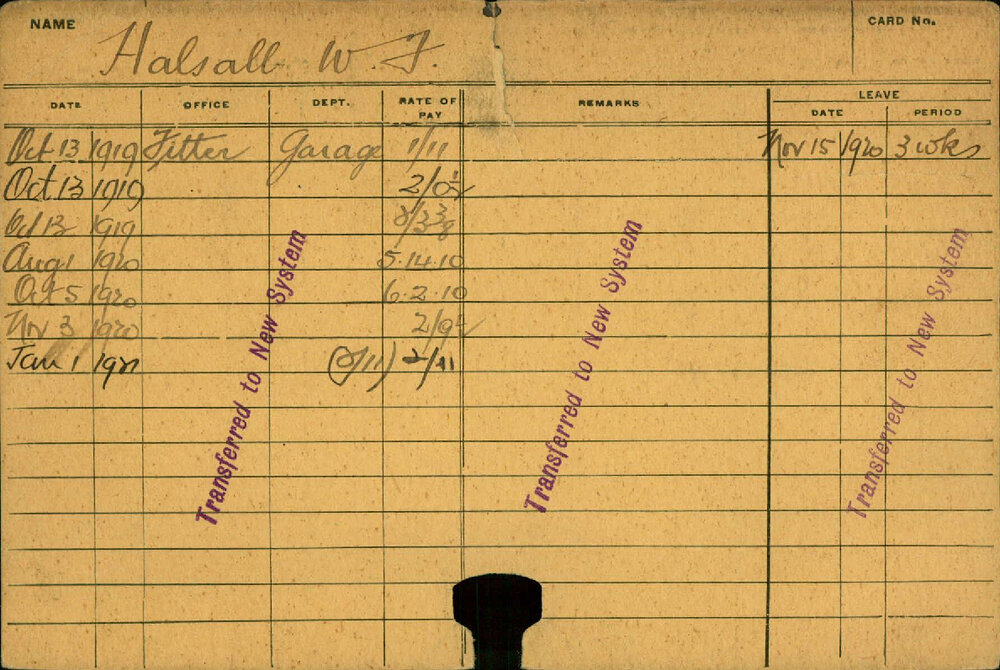 NAME Halsall W. F. CARD No.
DATE OFFICE DEPT. RATE OF PAY REMARKS LEAVE DATE PERIOD
Oct 13 1919 Fitter Garage 1/11 Nov 15 1920 3 wks
Oct 13 1919 2/0½
Oct 13 1919 2/3⅜
Aug 1 1920 5.14.10
Oct 5 1920 6.2.10
Nov 3 1920 2/9½
Jan 1 1921 (2/11) 2/11
Transferred to New System
Transferred to New System
Transferred to New System